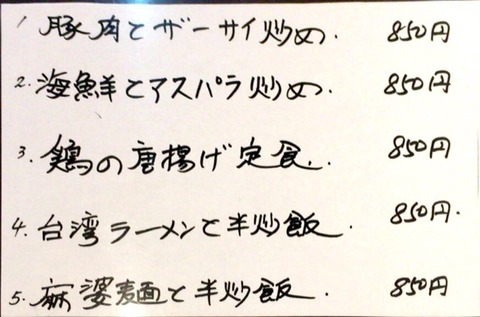 1 豚肉とザーサイ炒め. 850円
2. 海鮮とアスパラ炒め. 850円
3. 鶏の唐揚げ定食. 850円
4. 台湾ラーメンと半炒飯. 850円.
5. 麻婆麺と半炒飯. 850円